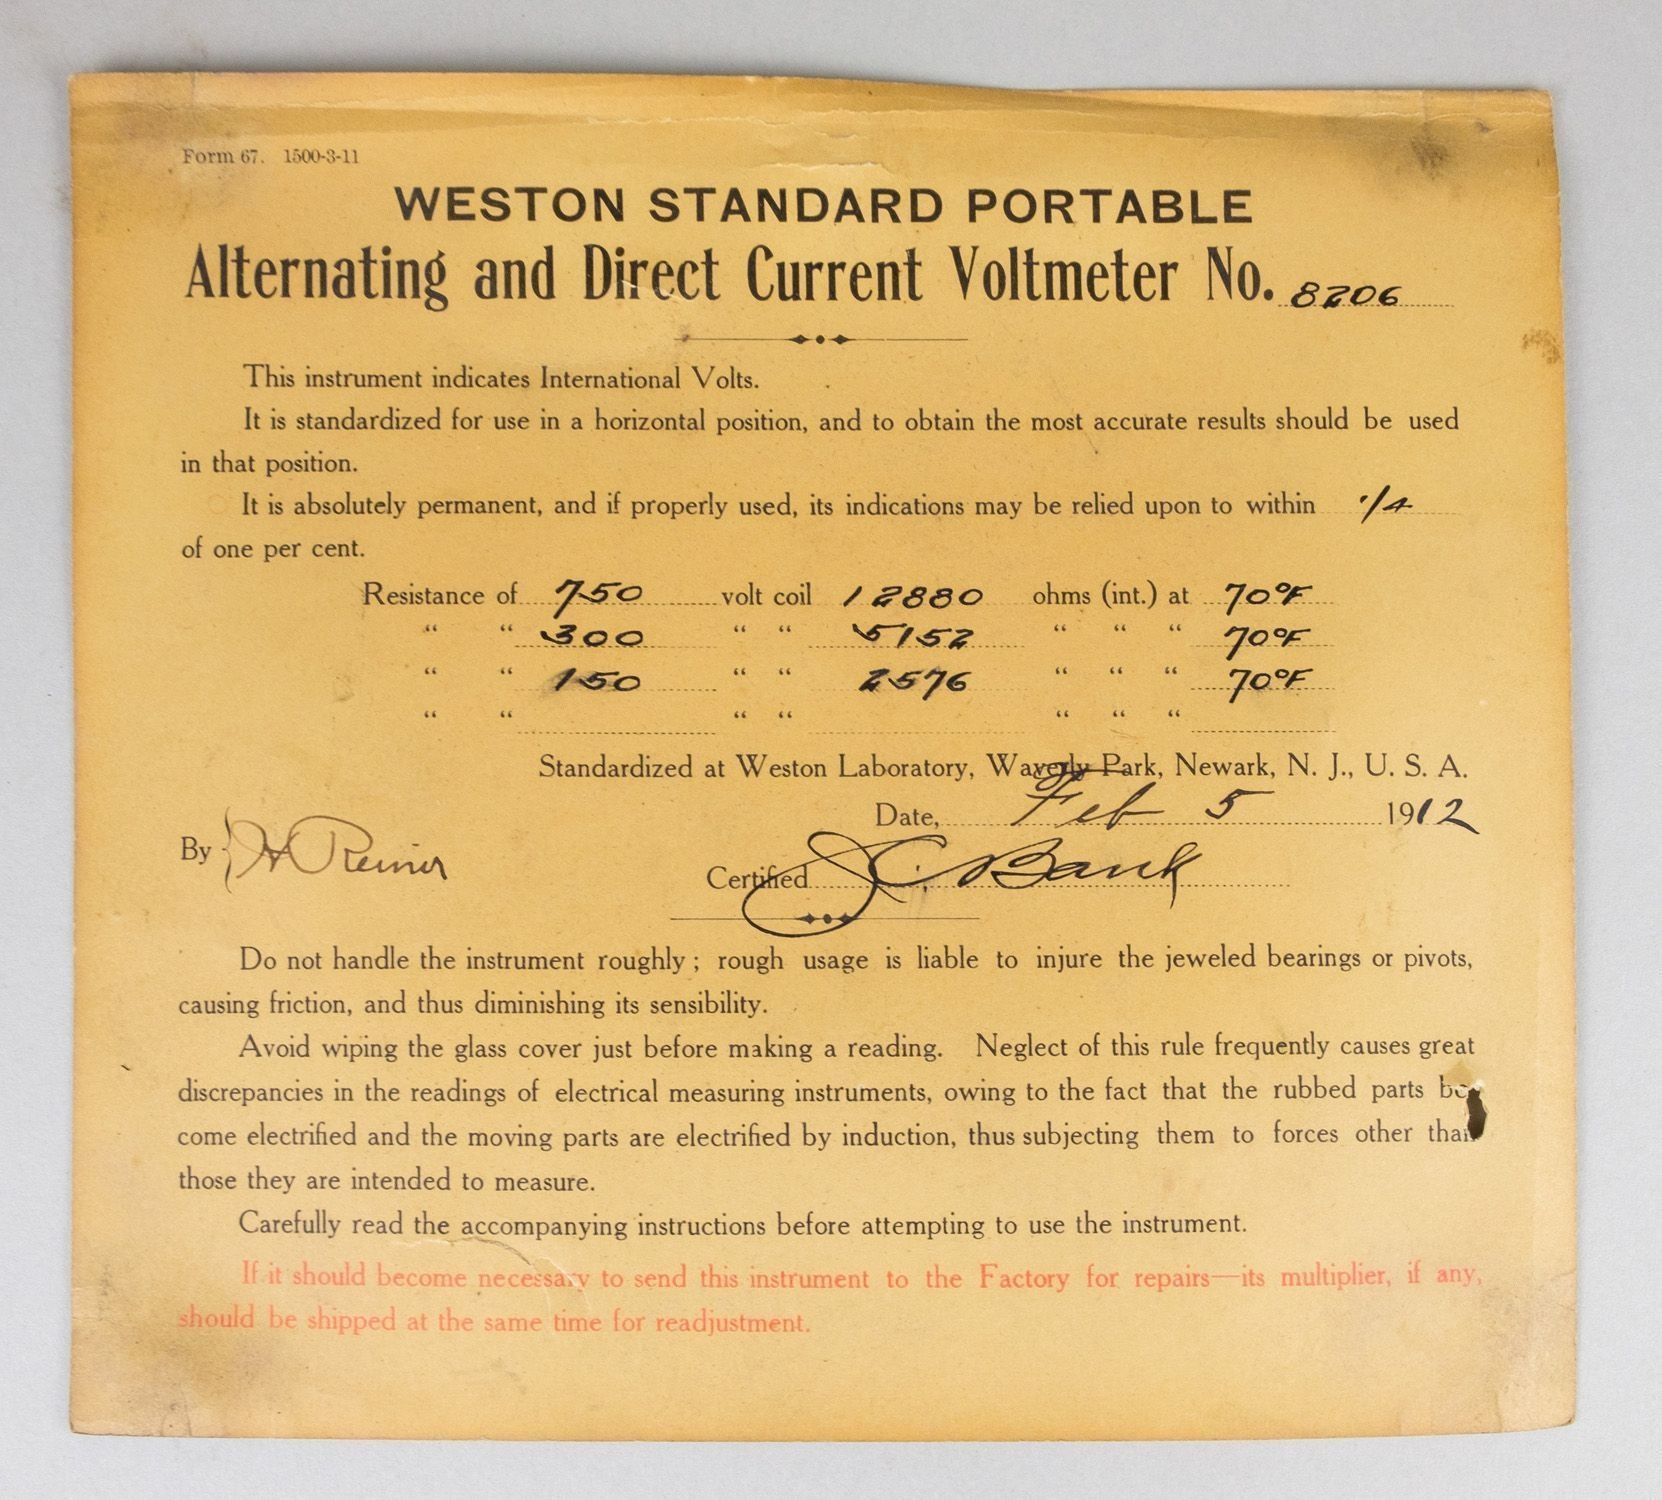 Form 67. 1500-3-11
WESTON STANDARD PORTABLE
Alternating and Direct Current Voltmeter No. 8206
This instrument indicates International Volts.
It is standardized for use in a horizontal position, and to obtain the most accurate results should be used
in that position.
It is absolutely permanent, and if properly used, its indications may be relied upon to within 1/4
of one per cent.
Resistance of 750 volt coil 12880 ohms (int.) at 70°F
“ “ 300 “ “ 5152 “ “ “ 70°F
“ “ 150 “ “ 2576 “ “ “ 70°F
“ “ “ “ “ “ “
Standardized at Weston Laboratory, Waverly Park, Newark, N. J., U. S. A.
Date, Feb 5 1912
By H Reiner
Certified J. C. Bank
Do not handle the instrument roughly; rough usage is liable to injure the jeweled bearings or pivots,
causing friction, and thus diminishing its sensibility.
Avoid wiping the glass cover just before making a reading. Neglect of this rule frequently causes great
discrepancies in the readings of electrical measuring instruments, owing to the fact that the rubbed parts be-
come electrified and the moving parts are electrified by induction, thus subjecting them to forces other than
those they are intended to measure.
Carefully read the accompanying instructions before attempting to use the instrument.
If it should become necessary to send this instrument to the Factory for repairs—its multiplier, if any,
should be shipped at the same time for readjustment.